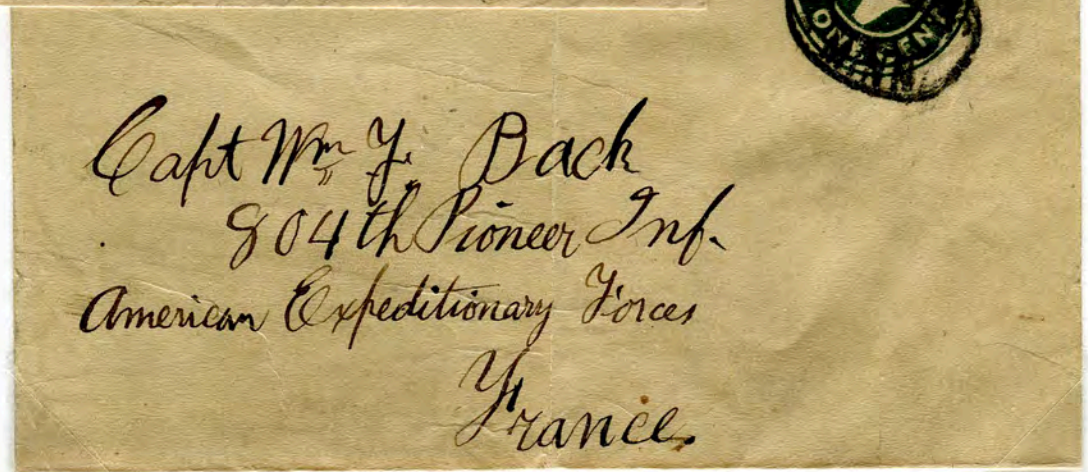 ONE CENT
Capt Wm Y. Back
804th Pioneer Inf.
American Expeditionary Forces
France